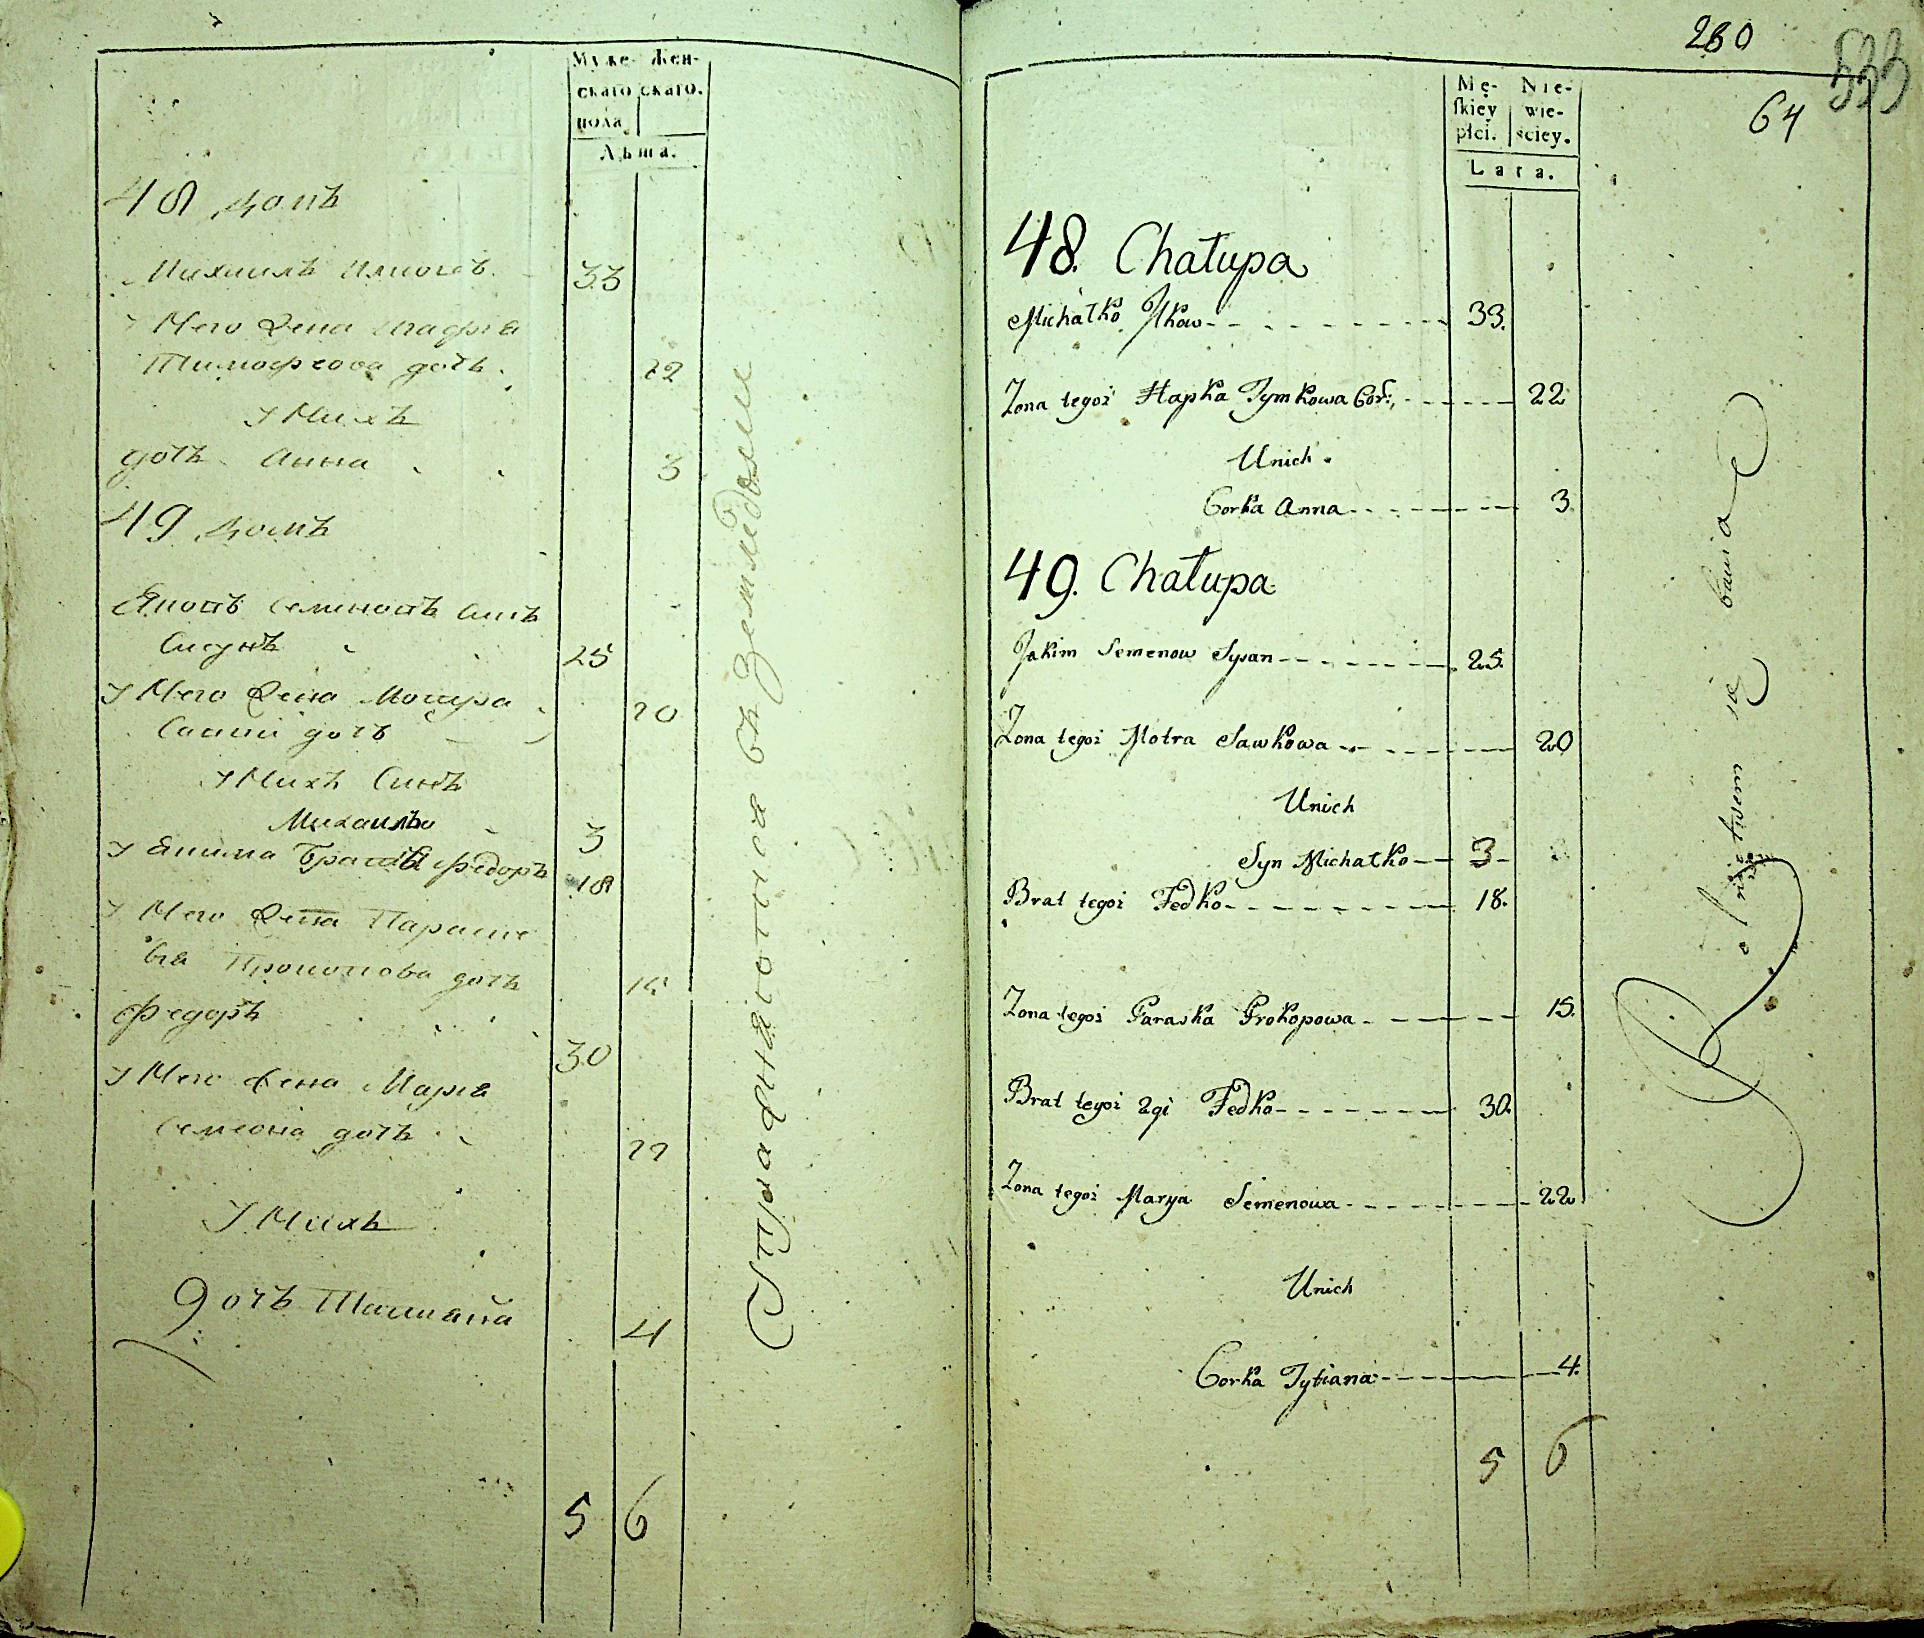 Муже- Жен-
скаго скаго.
пола
Лѣта.
48 домъ
Михаилъ Илковъ 33
У Него Жена Агафiя
Тимофеова дочь 22
У Нихъ
дочь Анна 3
49 домъ
Якимъ Семеновъ Синъ
Сисунъ 25
У Него Жена Мотра
Савки дочь 20
У Нихъ Синъ
Михаилъ 3
У Якима Братъ Федоръ 18
У Него Жена Параске
вiя Прокопова дочь 15
Федоръ 30
У Него Жена Марiя
Семеона дочь 22
У Нихъ
дочь Татiана 4
5 6
Упражняются въ Земледелiи
280
533
64
Mę- Nie-
ſkiey wie-
płci. ściey.
Lata.
48. Chałupa
Michałko Jłkow 33.
Zona tegoż Hapka Tymkowa Cor: 22
Unich
Corka Anna 3
49. Chałupa
Jakim Semenow Sysan 25.
Zona tegoż Motra Sawkowa 20
Unich
Syn Michałko 3
Brat tegoż Fedko 18.
Zona tegoż Paraska Prokopowa 15.
Brat tegoż 2gi Fedko 30
Zona tegoż Marya Semenowa 22
Unich
Corka Tytiana 4.
5 6
się bawią